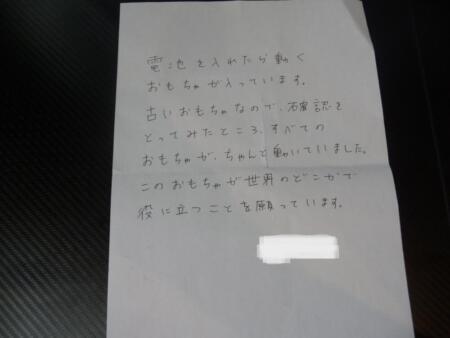 電池を入れたら動く
おもちゃが入っています。
古いおもちゃなので、確認を
とってみたところ、すべての
おもちゃが、ちゃんと動いていました。
このおもちゃが世界のどこかで
役に立つことを願っています。